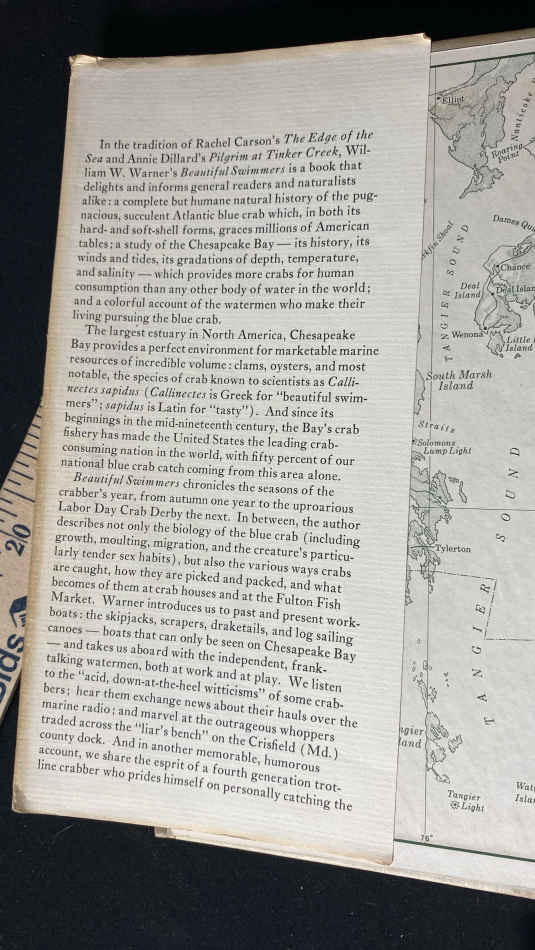 In the tradition of Rachel Carson's The Edge of the
Sea and Annie Dillard's Pilgrim at Tinker Creek, Wil-
liam W. Warner's Beautiful Swimmers is a book that
delights and informs general readers and naturalists
alike: a complete but humane natural history of the pug-
nacious, succulent Atlantic blue crab which, in both its
hard- and soft-shell forms, graces millions of American
tables; a study of the Chesapeake Bay — its history, its
winds and tides, its gradations of depth, temperature,
and salinity — which provides more crabs for human
consumption than any other body of water in the world;
and a colorful account of the watermen who make their
living pursuing the blue crab.
The largest estuary in North America, Chesapeake
Bay provides a perfect environment for marketable marine
resources of incredible volume: clams, oysters, and most
notable, the species of crab known to scientists as Calli-
nectes sapidus (Callinectes is Greek for "beautiful swim-
mers"; sapidus is Latin for "tasty"). And since its
beginnings in the mid-nineteenth century, the Bay's crab
fishery has made the United States the leading crab-
consuming nation in the world, with fifty percent of our
national blue crab catch coming from this area alone.
Beautiful Swimmers chronicles the seasons of the
crabber's year, from autumn one year to the uproarious
Labor Day Crab Derby the next. In between, the author
describes not only the biology of the blue crab (including
growth, moulting, migration, and the creature's particu-
larly tender sex habits), but also the various ways crabs
are caught, how they are picked and packed, and what
becomes of them at crab houses and at the Fulton Fish
Market. Warner introduces us to past and present work-
boats: the skipjacks, scrapers, draketails, and log sailing
canoes — boats that can only be seen on Chesapeake Bay
— and takes us aboard with the independent, frank-
talking watermen, both at work and at play. We listen
to the "acid, down-at-the-heel witticisms" of some crab-
bers; hear them exchange news about their hauls over the
marine radio; and marvel at the outrageous whoppers
traded across the "liar's bench" on the Crisfield (Md.)
county dock. And in another memorable, humorous
account, we share the esprit of a fourth generation trot-
line crabber who prides himself on personally catching the
Elliot
Nanticoke
Roaring
Point
Dames Qua
Shoal
TANGIER SOUND
Chance
Deal
Island
Deal Islan
Wenona
Little
Island
South Marsh
Island
Straits
Solomons
Lump Light
Tylerton
TANGIER SOUND
ngier
land
Tangier
Light
Wat
Islan
76°
20